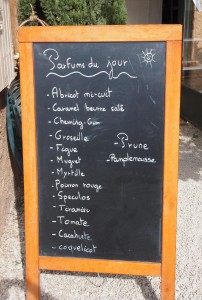 Parfums du jour
- Abricot mi-cuit
- Caramel beurre salé
- Chewing-Gum
- Groseille
- Figue
- Muguet
- Myrtille
- Poivron rouge
- Speculos
- Tiramisu
- Tomate
- Cacahuète
- coquelicot
- Prune
- Pamplemousse